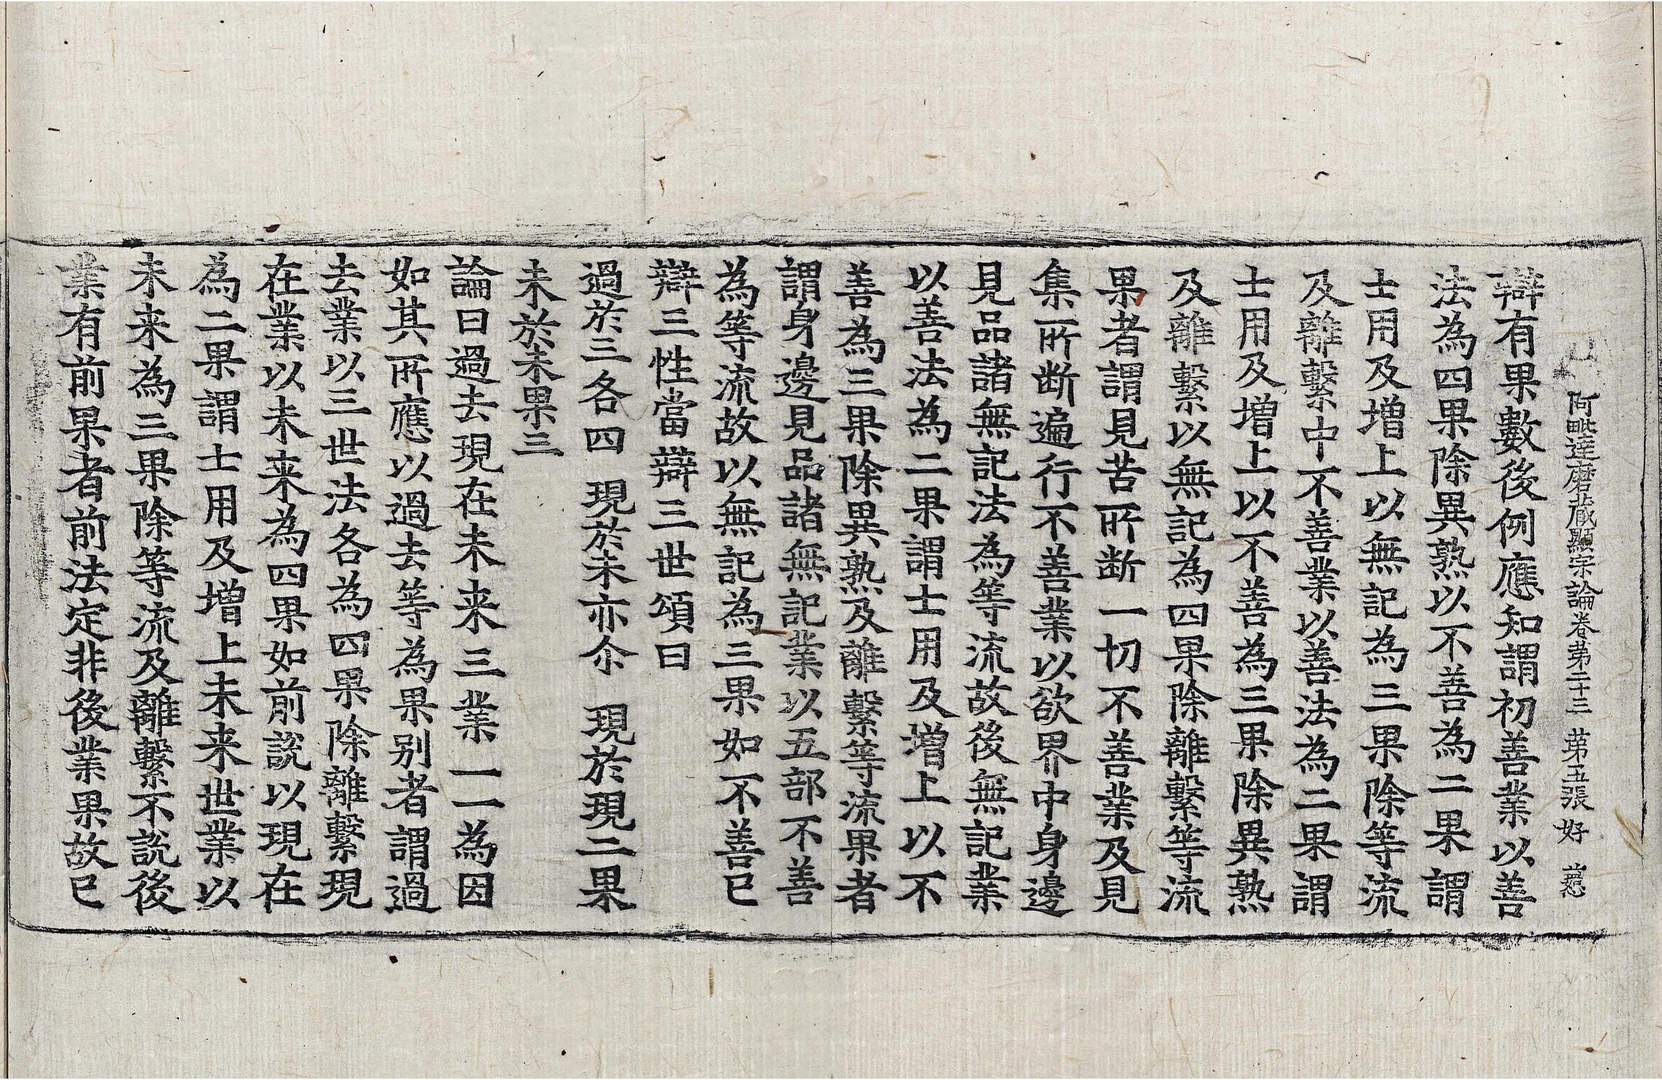 阿毗達磨藏顯宗論卷第二十三 第五張 好
辯有果數後例應知謂初善業以善
法為四果除異熟以不善為二果謂
士用及增上以無記為三果除等流
及離繫中不善業以善法為二果謂
士用及增上以不善為三果除異熟
及離繫以無記為四果除離繫等流
果者謂見苦所断一切不善業及見
集所断遍行不善業以欲界中身邊
見品諸無記法為等流故後無記業
以善法為二果謂士用及增上以不
善為三果除異熟及離繫等流果者
謂身邊見品諸無記業以五部不善
為等流故以無記為三果如不善已
辯三性當辯三世頌曰
過於三各四 現於未亦尒 現於現二果
未於未果三
論曰過去現在未来三業一一為因
如其所應以過去等為果別者謂過
去業以三世法各為四果除離繫現
在業以未来為四果如前說以現在
為二果謂士用及增上未来世業以
未来為三果除等流及離繫不說後
業有前果者前法定非後業果故已